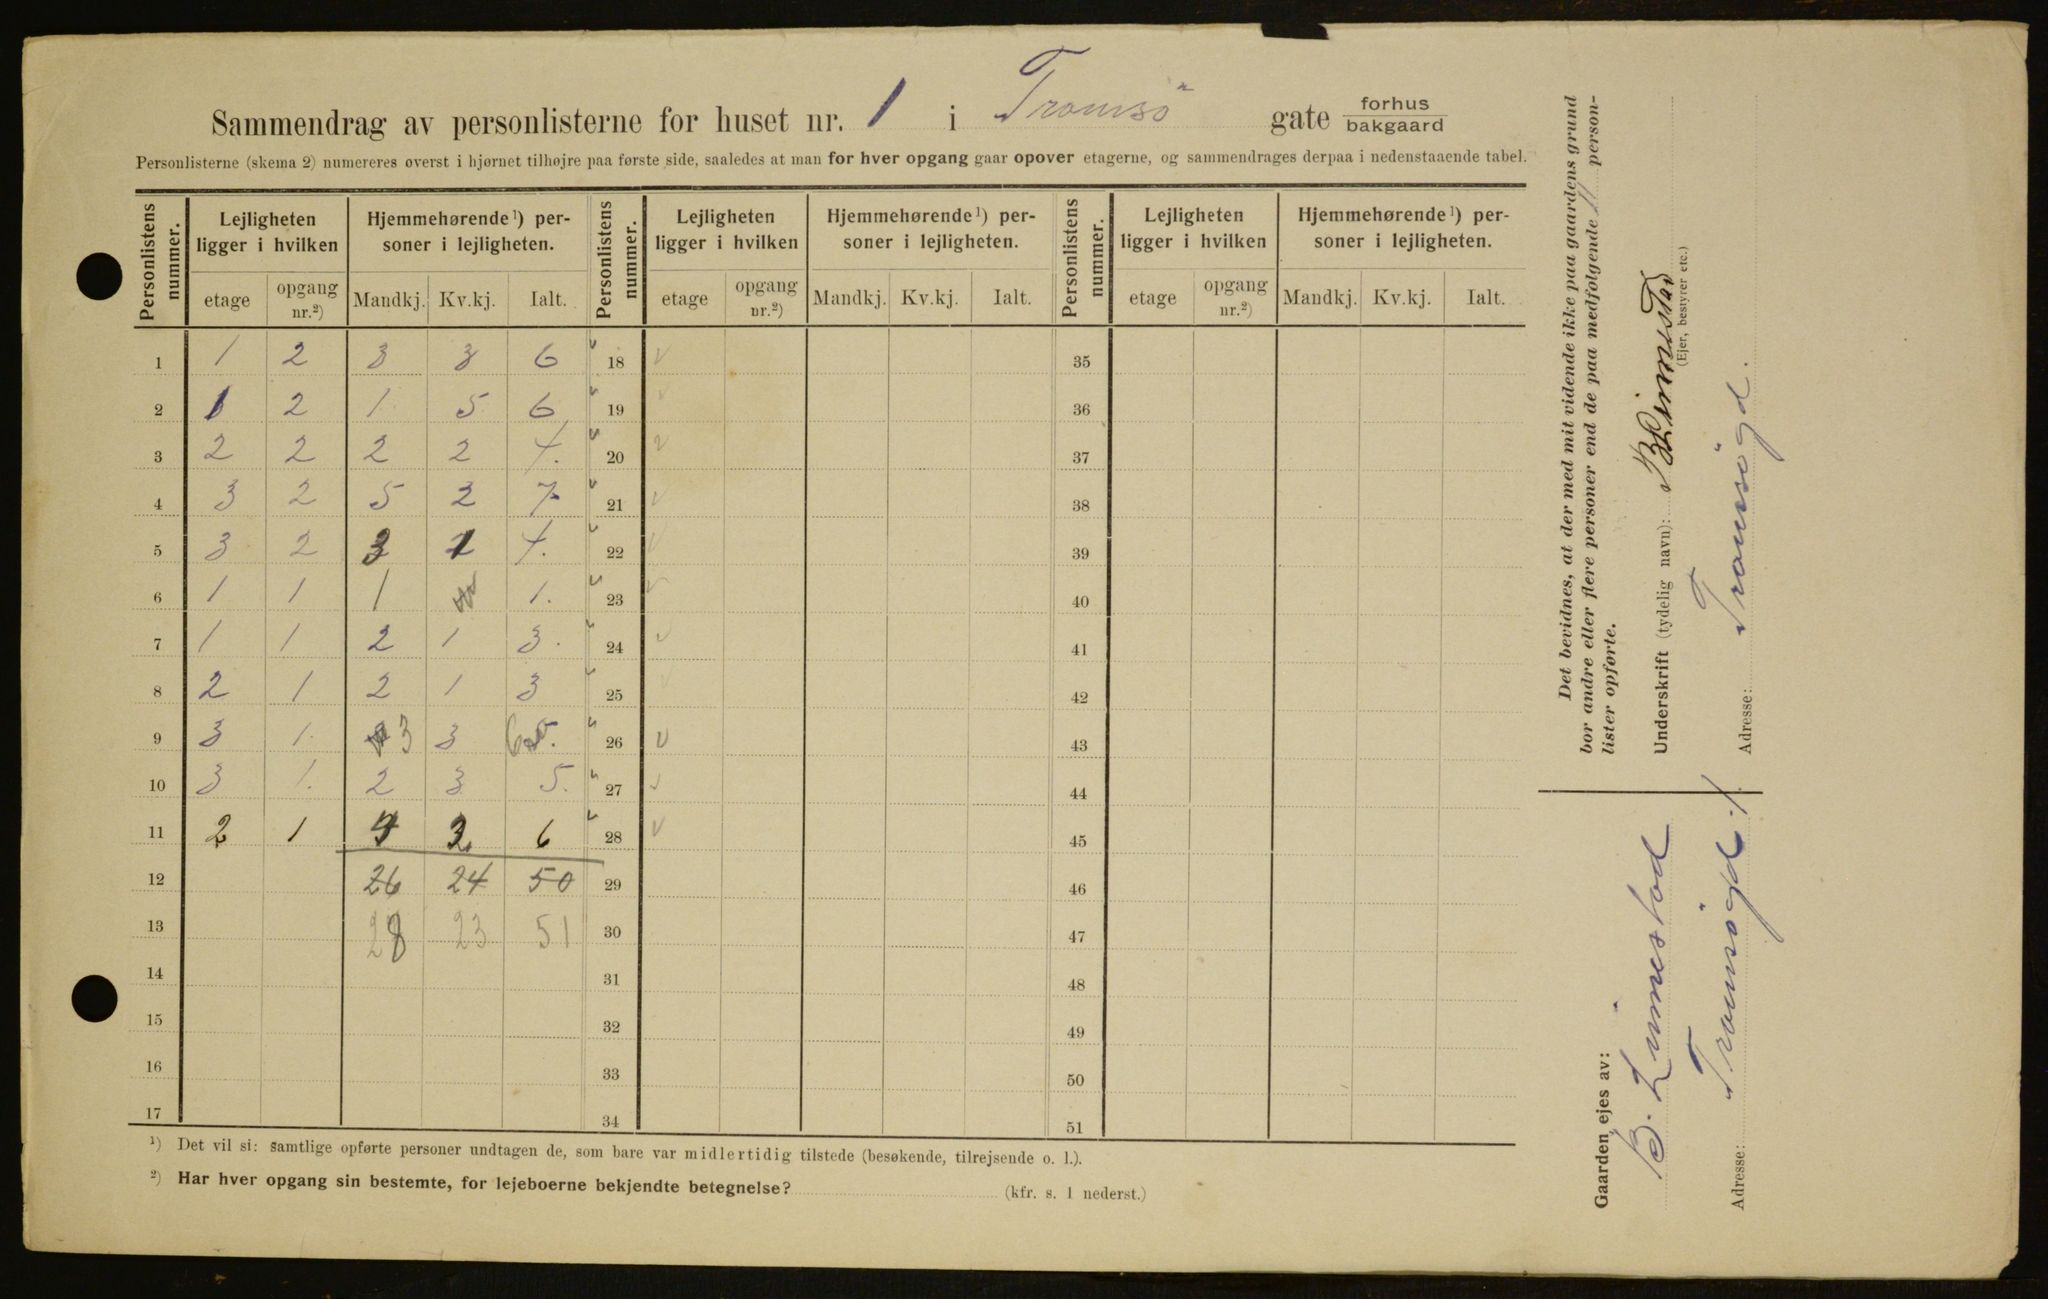 Sammendrag av personlisterne for huset nr. 1 i Tromsö gate forhus bakgaard
Personlisterne (skema 2) numereres øverst i hjørnet tilhøjre paa første side, saaledes at man for hver opgang gaar opover etagerne, og sammendrages derpaa i nedenstaaende tabel.
Personlistens nummer. Lejligheten ligger i hvilken Hjemmehørende ¹) personer i lejligheten. Personlistens nummer. Lejligheten ligger i hvilken Hjemmehørende ¹) personer i lejligheten. Personlistens nummer. Lejligheten ligger i hvilken Hjemmehørende ¹) personer i lejligheten.
etage opgang nr.²) Mandkj. Kv.kj. Ialt. etage opgang nr.²) Mandkj. Kv.kj. Ialt. etage opgang nr.²) Mandkj. Kv.kj. Ialt.
1 1 2 3 3 6 18 35
2 1 2 1 5 6 19 36
3 2 2 2 2 4. 20 37
4 3 2 5 2 7 21 38
5 3 2 3 1 4. 22 39
6 1 1 1 1. 23 40
7 1 1 2 1 3. 24 41
8 2 1 2 1 3 25 42
9 3 1. 3 3 6 26 43
10 3 1. 2 3 5. 27 44
11 2 1 4 2 6 28 45
12 26 24 50 29 46
13 28 23 51 30 47
14 31 48
15 32 49
16 33 50
17 34 51
¹) Det vil si: samtlige opførte personer undtagen de, som bare var midlertidig tilstede (besøkende, tilrejsende o. l.).
²) Har hver opgang sin bestemte, for lejeboerne bekjendte betegnelse? (kfr. s. 1 nederst.)
Det bevidnes, at der med mit vidende ikke paa gaardens grund
bor andre eller flere personer end de paa medfølgende 11 person-
lister opførte.
Underskrift (tydelig navn): B Linnestad
(Ejer, bestyrer etc.)
Adresse: Tromsögd.
Gaarden ejes av:
B. Linnestad
Adresse: Tromsögd. 1.